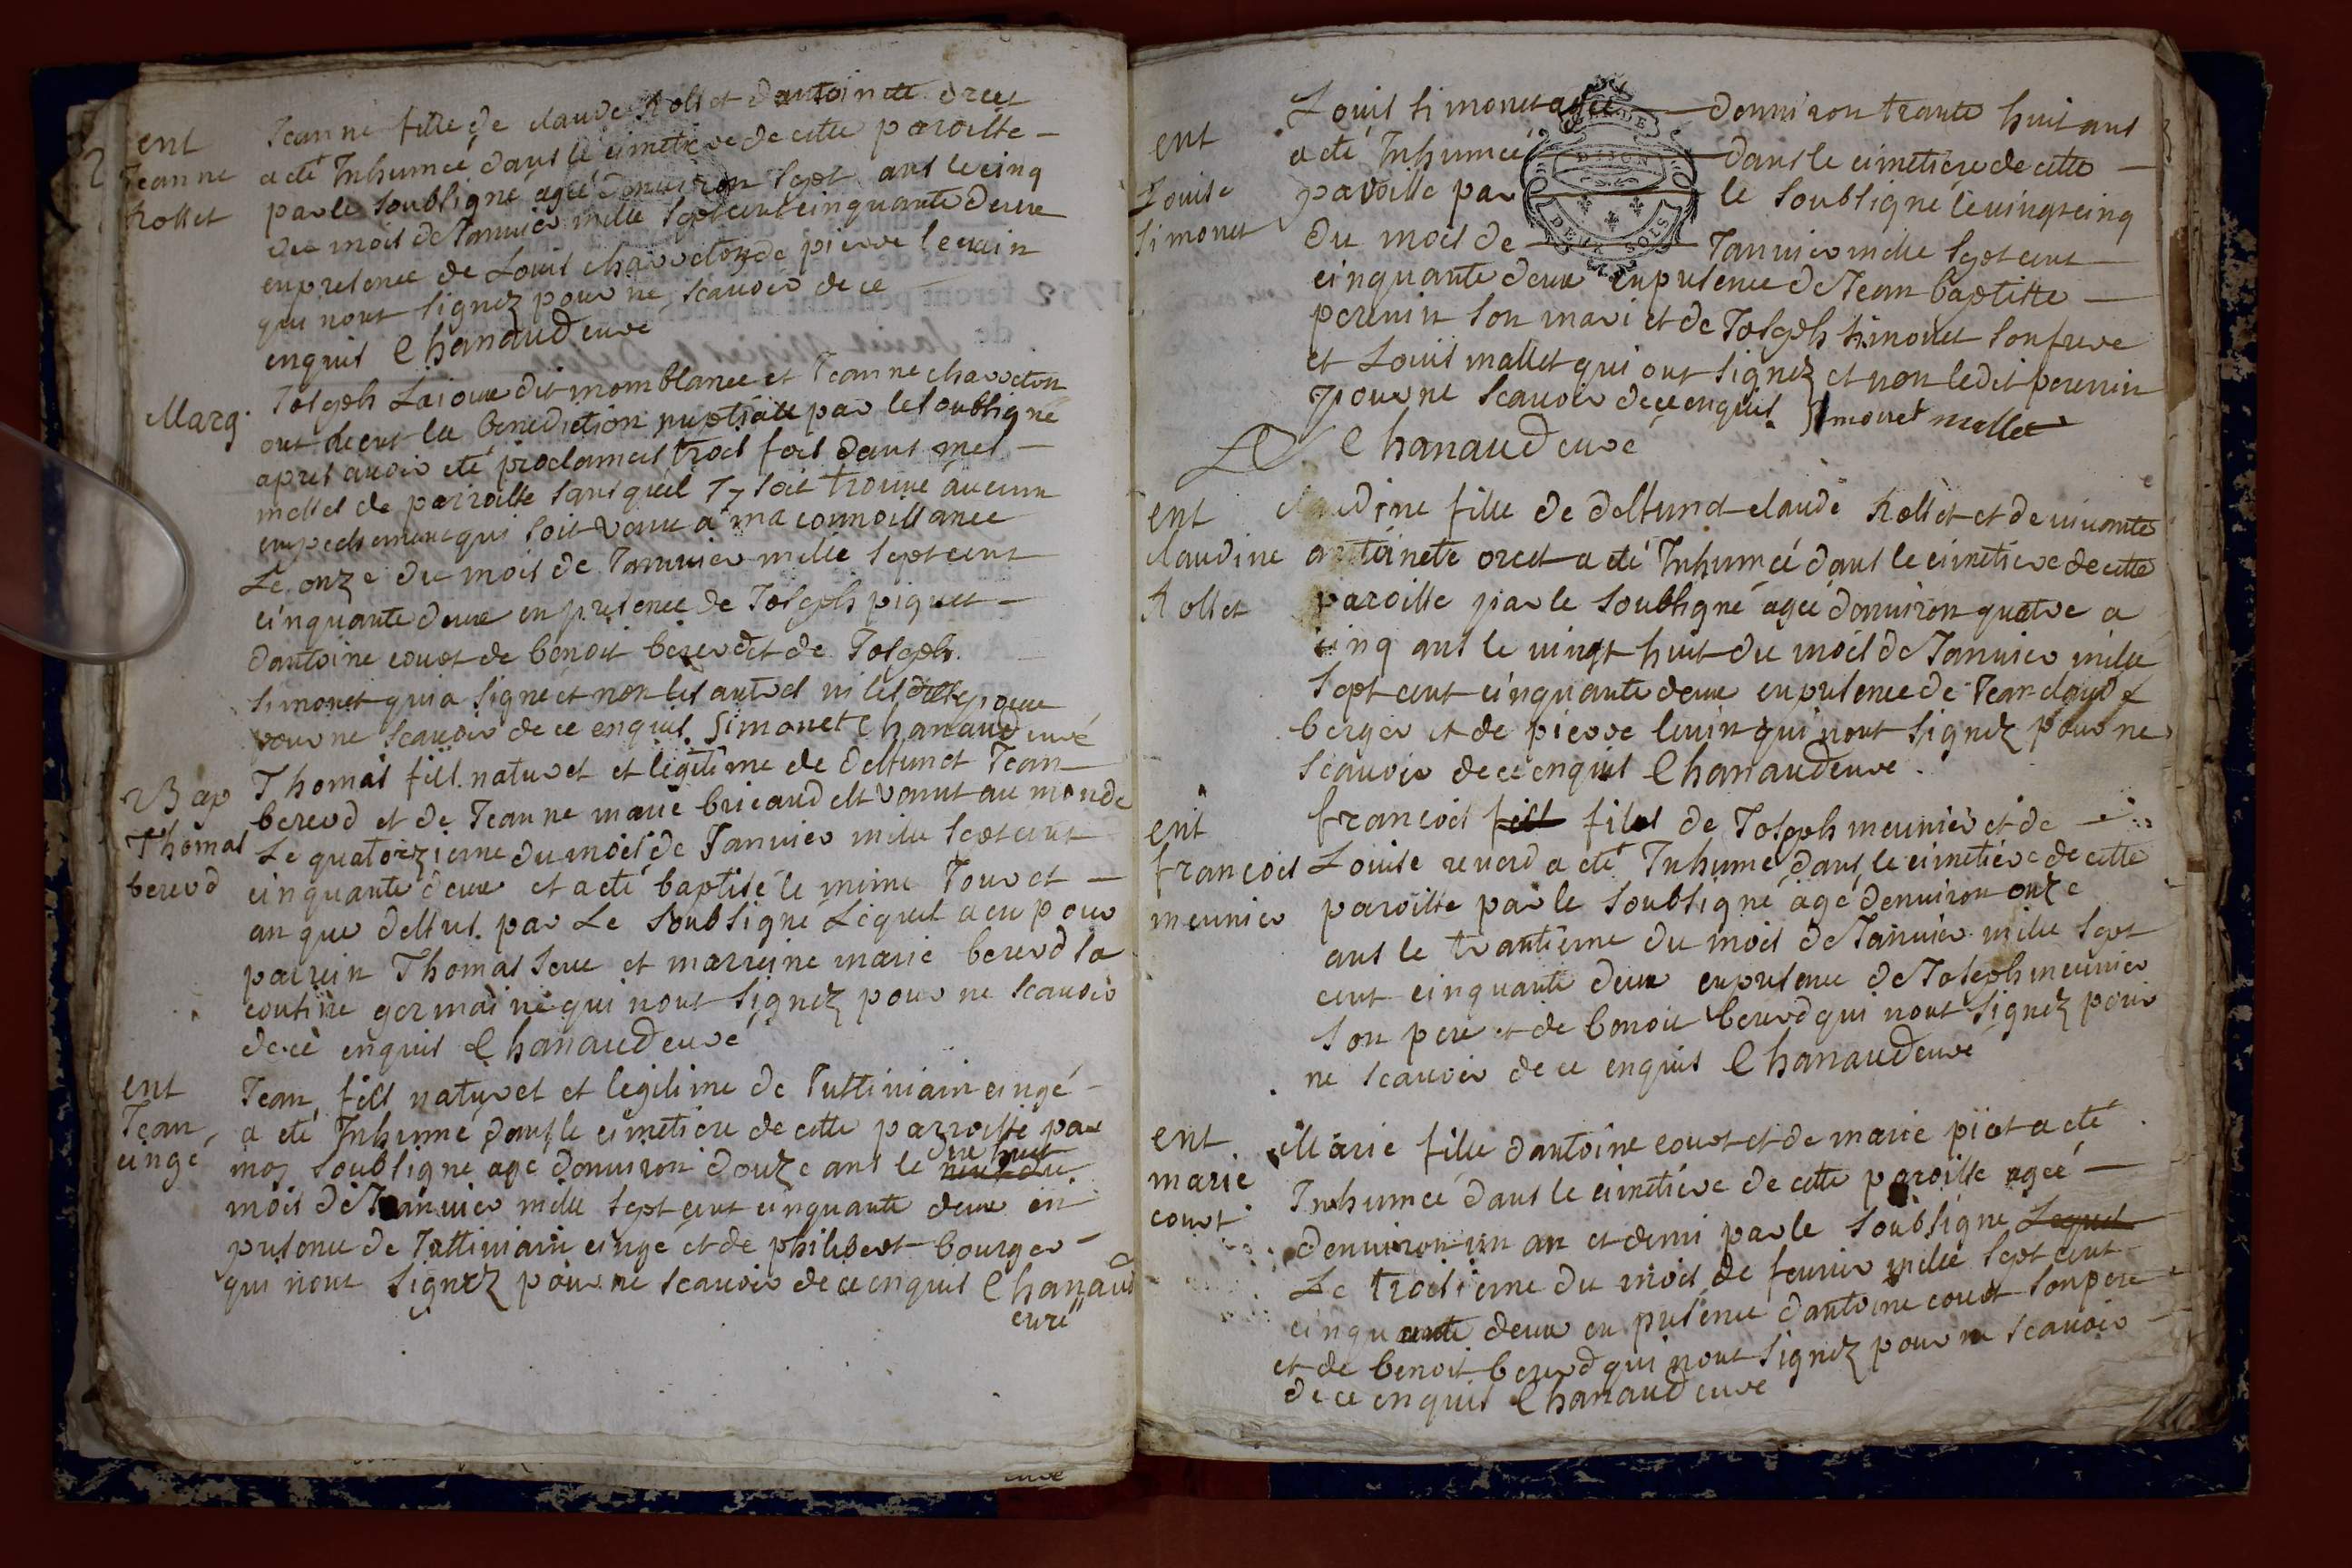 2
ent
Jeanne
Rollet
Jeanne fille de claude Rollet dantoinette orcet
a eté Inhumeé dans le cimetiere de cette paroisse
par le soubsigné ageé denuiron sept ans le cinq
du mois de Januier mille sept cent cinquante deux
en presence de Louis charreton de pierre leuin
qui nont signez pour ne scauoir de ce
enquis Chanaud curé
Marg.
Joseph Laioux dit momblanee et Jeanne charreton
ont receut la benediction nuptialle par le soubsigné
apres auoir eté proclamees trois fois dans mes
messes de parroisse sans quil sy soit trouué aucun
empechement qui soit venu a ma connoissance
Le onze du mois de Januier mille sept cent
cinquante deux en presence de Joseph piquet
dantoine couot de benoit bererd et de Joseph
simonet qui a signé et non les autres ni les dits epoux
pour ne scauoir de ce enquis. Simonet Chanaud curé
Bap
Thomas
bererd
Thomas fils naturel et legitime de deffunct Jean
bererd et de Jeanne marie bricaud est venut au monde
Le quatorzieme du mois de Januier mille sept cent
cinquante deux et a eté baptisé le mime Jour et
an que dessus. par Le soubsigné Lequel a eu pour
parrein Thomas seue et marreine marie bererd sa
cousine germaine qui nont signez pour ne scauoir
de ce enquis Chanaud curé
ent
Jean
cingé
Jean fils naturel et legitime de Justiniain cingé
a eté Inhumé dans le cimetiere de cette parroisse par
moy soubsigné agé denuiron douze ans le neuf du
dix huit
mois de Januier mille sept cent cinquante deux en
presence de Justiniain cingé et de philibert bourger
qui nont signez pour ne scauoir de ce enquis Chanaud
curé
3
ent
Louise
simonet
Louis simonet agee denuiron trante huit ans
a eté Inhumeé dans le cimetiere de cette
paroisse par le soubsigné le uingt cinq
du mois de Januier mille sept cent
cinquante deux en presence de Jean baptiste
perenin son mari et de Joseph simonet son frere
et Louis mallet qui ont signez et non le dit perenin
pour ne scauoir de ce enquis. Simonet mallet
Chanaud curé
GENE DE
DIJON
DEUX SOLS
ent
claudine
Rollet
claudine fille de deffunct claude Rollet et de uiuante
antoinete orcet a eté Inhumeé dans le cimetiere de cette
paroisse par le soubsigné ageé denuiron quatre a
cinq ans le uingt huit du mois de Januier mille
sept cent cinquante deux en presence de Jean claude
berger et de pierre leuin qui nont signez pour ne
scauoir de ce enquis Chanaud curé.
ent
francois
meunier
francois fils files de Joseph meunier et de
Louise renord a eté Inhumé dans le cimetiere de cette
paroisse par le soubsigné agé denuiron onze
ans le trantieme du mois de Januier mille sept
cent cinquante deux en presence de Joseph meunier
son pere et de benoit bererd qui nont signez pour
ne scauoir de ce enquis Chanaud curé
ent
marie
couot
Marie fille dantoine couot et de marie piot a eté
Inhumeé dans le cimetiere de cette paroisse ageé
denuiron un an et demi par le soubsigné Lequel
Le troisieme du mois de feurier mille sept cent
cinquante deux en presence dantoine couot son pere
et de benoit bererd qui nont signez pour ne scauoir
de ce enquis Chanaud curé